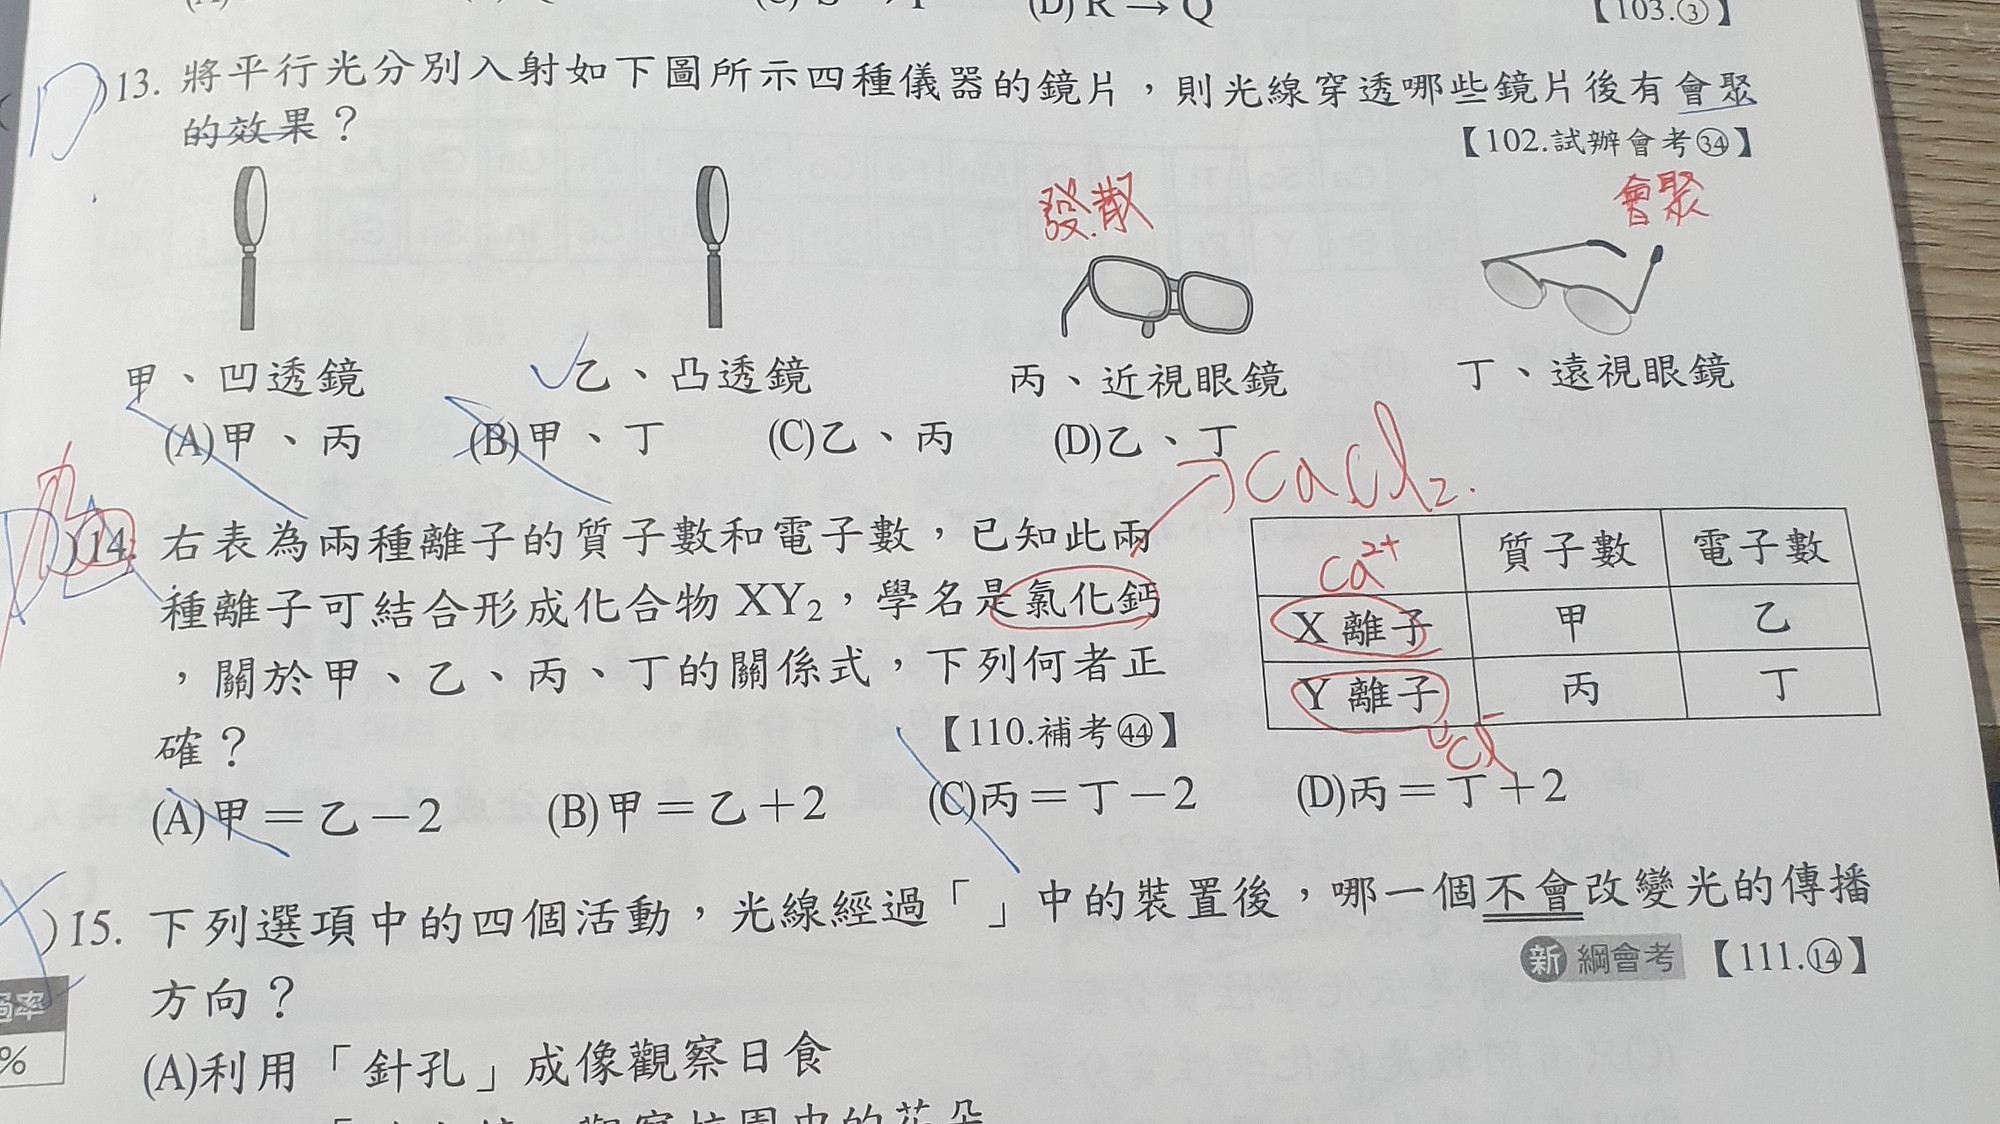 (D) R → Q 【103.③】
13. 將平行光分別入射如下圖所示四種儀器的鏡片，則光線穿透哪些鏡片後有會聚
的效果？ 【102.試辦會考㉞】
發散 會聚
甲、凹透鏡 乙、凸透鏡 丙、近視眼鏡 丁、遠視眼鏡
(A)甲、丙 (B)甲、丁 (C)乙、丙 (D)乙、丁
CaCl₂.
14. 右表為兩種離子的質子數和電子數，已知此兩
種離子可結合形成化合物 XY₂，學名是氯化鈣
，關於甲、乙、丙、丁的關係式，下列何者正
確？ 【110.補考㊹】
Ca²⁺ 質子數 電子數
X 離子 甲 乙
Y 離子 丙 丁
Cl⁻
(A)甲＝乙－2 (B)甲＝乙＋2 (C)丙＝丁－2 (D)丙＝丁＋2
)15. 下列選項中的四個活動，光線經過「 」中的裝置後，哪一個不會改變光的傳播
方向？ 新 綱會考 【111.⑭】
率
%
(A)利用「針孔」成像觀察日食